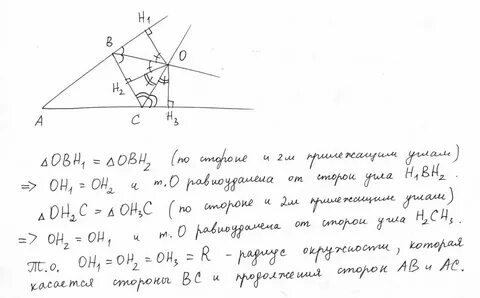 H₁
B
O
H₂
A
C
H₃
△OBH₁ = △OBH₂ (по стороне и 2м прилежащим углам)
=> OH₁ = OH₂ и т.О равноудалена от сторон угла H₁BH₂.
△OH₂C = △OH₃C (по стороне и 2м прилежащим углам)
=> OH₂ = OH₁ и т.О равноудалена от сторон угла H₂CH₃.
Т.о. OH₁ = OH₂ = OH₃ = R - радиус окружности, которая
касается стороны BC и продолжения сторон AB и AC.